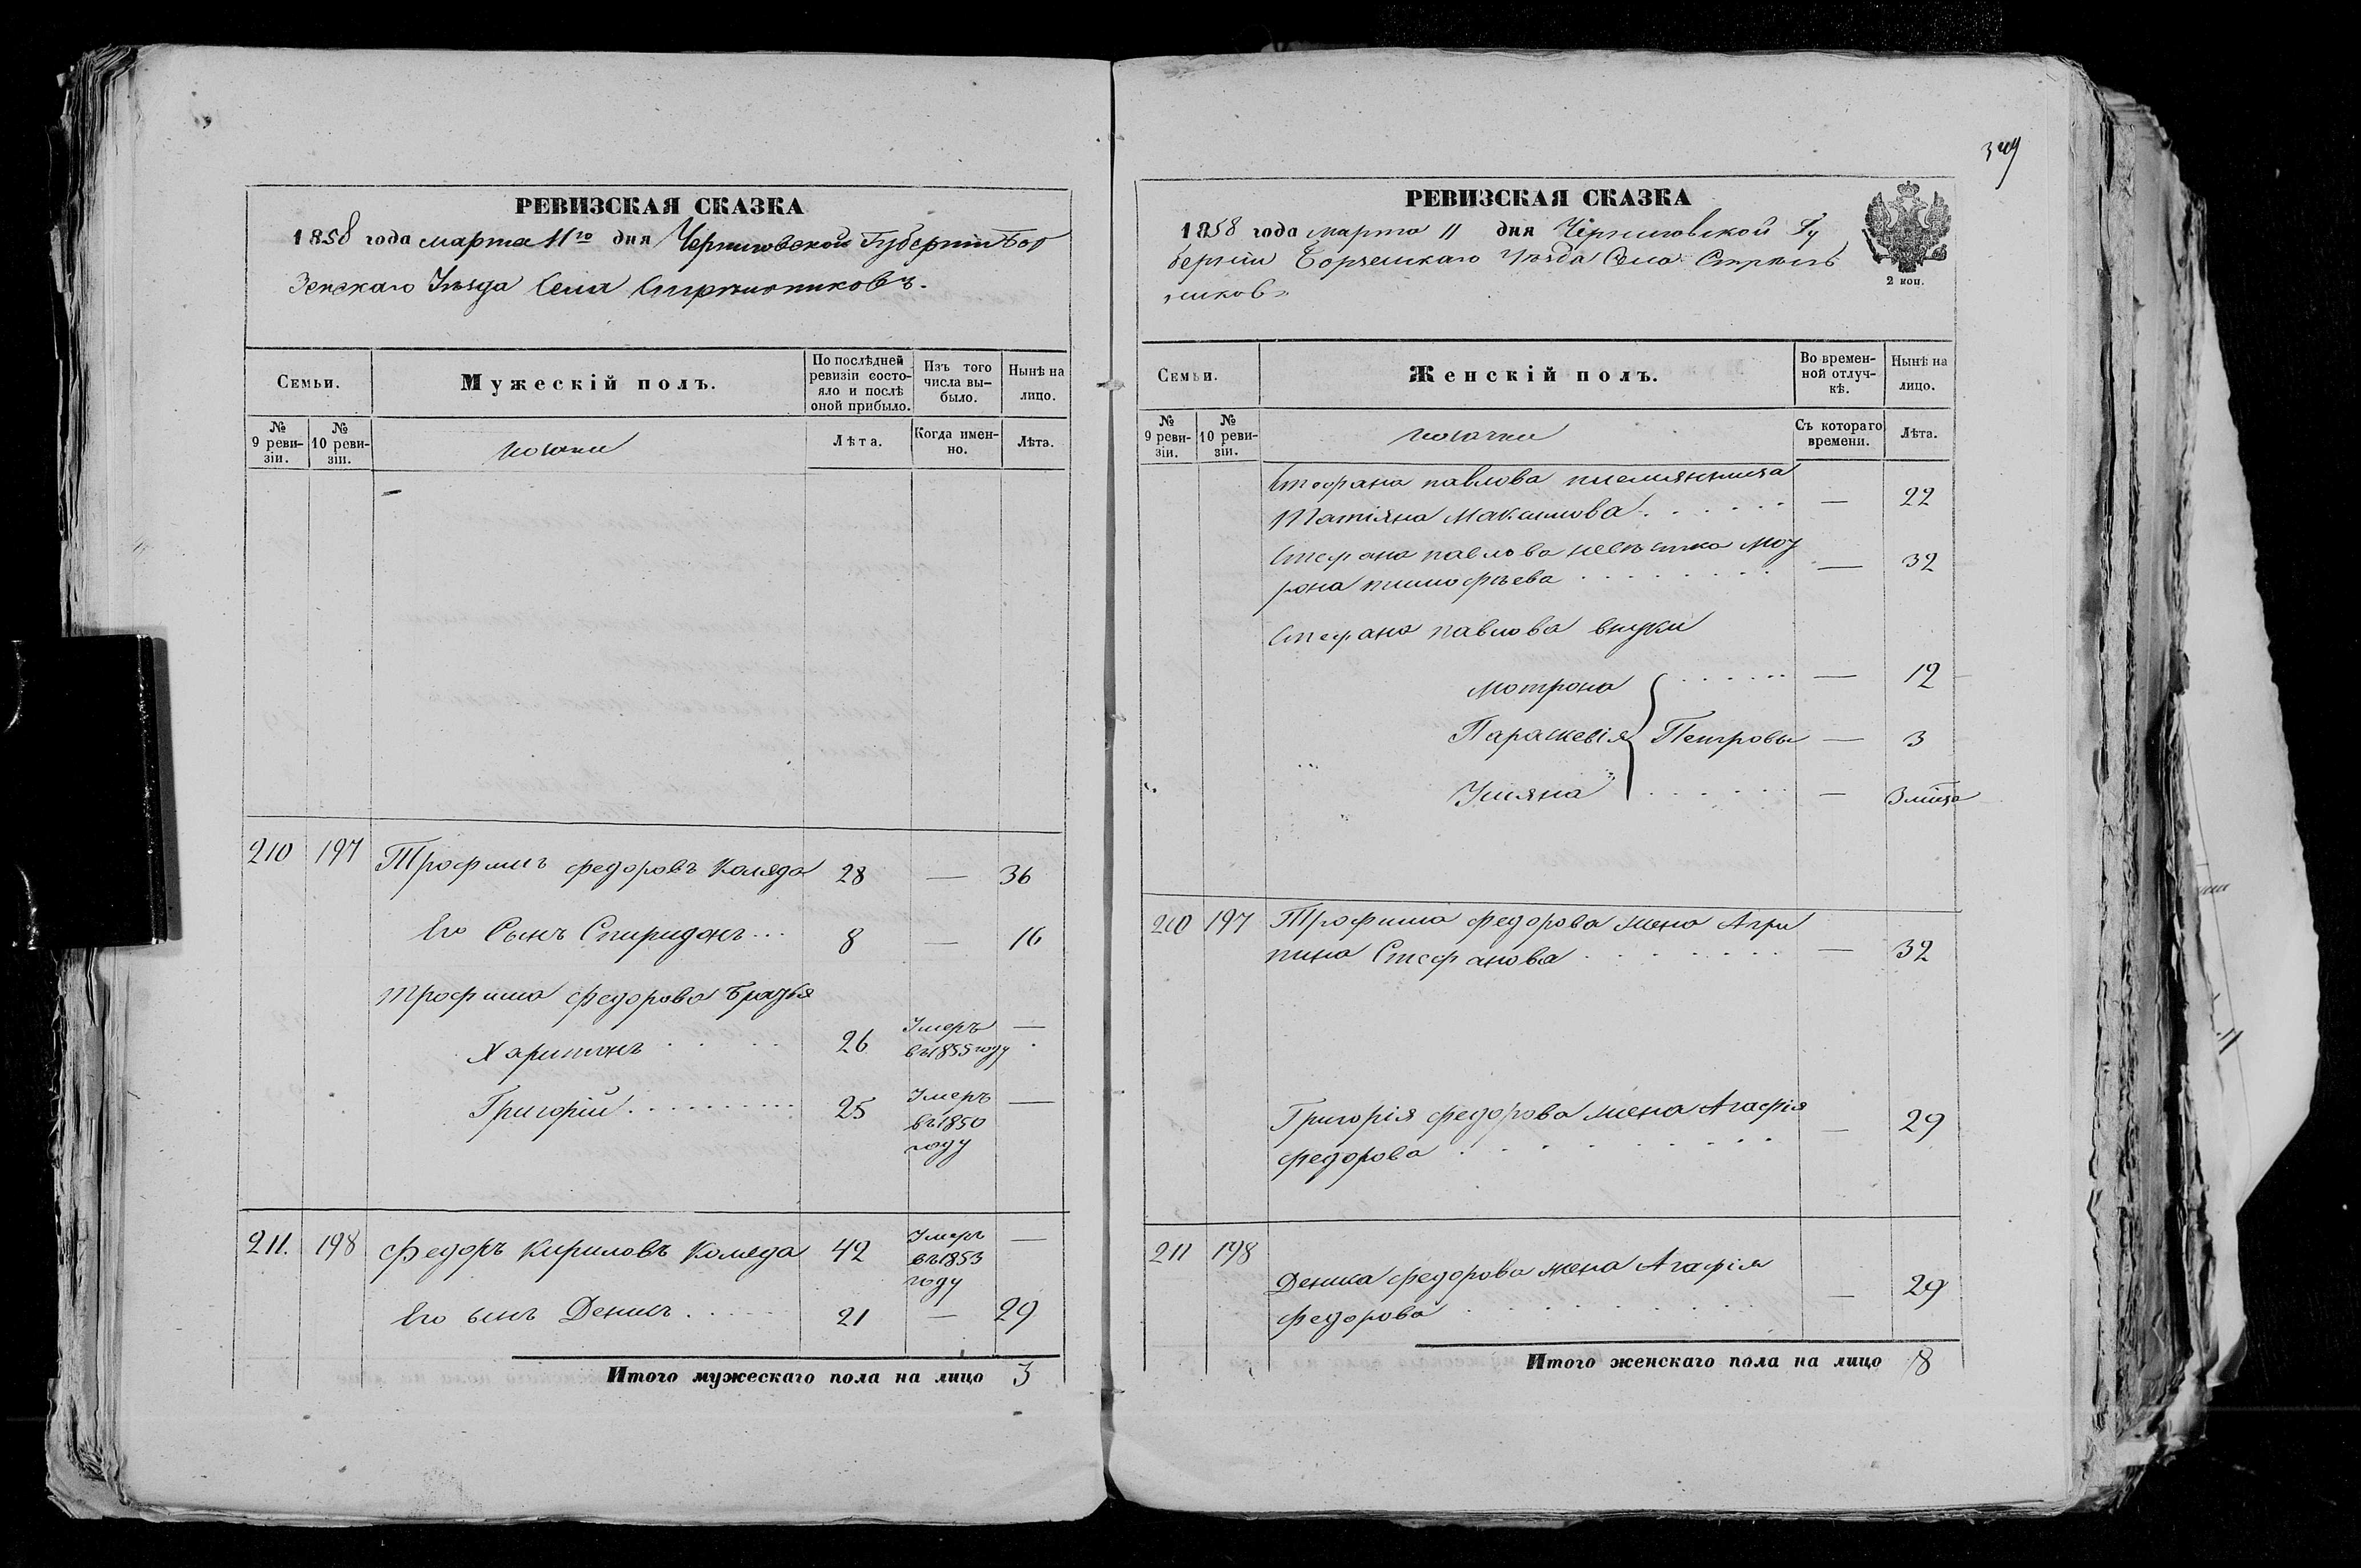 РЕВИЗСКАЯ СКАЗКА
1858 года марта 11го дня Черниговской Губерніи Бор
зенскаго Уѣзда Села Стрѣльниковъ.
Семьи.
Мужескій полъ.
По послѣдней ревизіи состояло и послѣ оной прибыло.
Изъ того числа выбыло.
Нынѣ на лицо.
№ 9 ревизіи.
№ 10 ревизіи.
козаки
Лѣта.
Когда именно.
Лѣта.
210 197 Трофимъ Федоровъ Коляда 28 — 36
Его Сынъ Спиридонъ... 8 — 16
Трофима Федорова Братья
Харитонъ 26 Умеръ въ 1855 году —
Григорій 25 Умеръ въ 1850 году —
211. 198 Федоръ Кириловъ Коляда 42 Умеръ въ 1853 году —
Его сынъ Денисъ 21 — 29
Итого мужескаго пола на лицо 3
РЕВИЗСКАЯ СКАЗКА
1858 года марта 11 дня Черниговской Гу
берніи Борзенскаго Уѣзда Села Стрѣль
никовъ
2 коп.
Семьи.
Женскій полъ.
Во временной отлучкѣ.
Нынѣ на лицо.
№ 9 ревизіи.
№ 10 ревизіи.
козачки
Съ котораго времени.
Лѣта.
Стефана павлова племянница
Татіяна Максимова — 22
Стефана павлова невѣстка
тимофѣева — 32
Стефана павлова внуки
Мотрона — 12
Параскевія Петровы — 3
Уліяна — 3 мѣсяца
210 197 Трофима Федорова жена Агри
пина Стефанова — 32
Григорія Федорова жена Агафія
Федорова — 29
211 198 Дениса Федорова жена Агафія
Федорова — 29
Итого женскаго пола на лицо 8